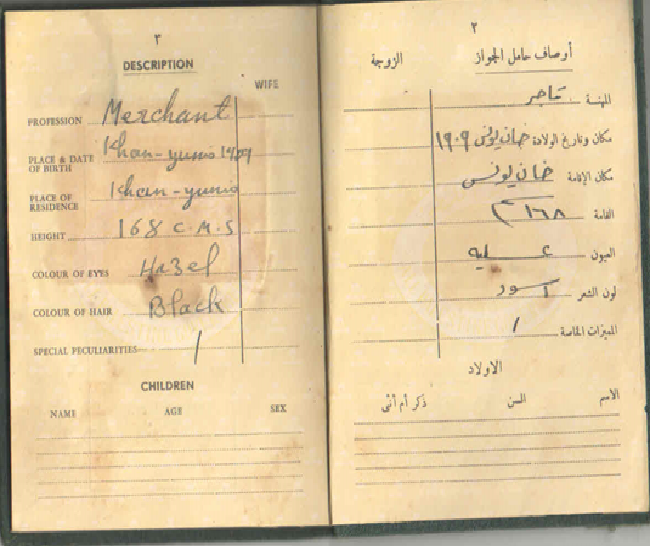 ٣
DESCRIPTION
WIFE
PROFESSION Merchant
PLACE & DATE OF BIRTH Khan-yunis 1909
PLACE OF RESIDENCE Khan-yunis
HEIGHT 168 C.M.S
COLOUR OF EYES Hazel
COLOUR OF HAIR Black
SPECIAL PECULIARITIES /
CHILDREN
NAME AGE SEX
٢
أوصاف حامل الجواز الزوجة
المهنة تاجر
مكان وتاريخ الولادة خان يونس ١٩٠٩
مكان الإقامة خان يونس
القامة ١٦٨
العيون عسليه
لون الشعر اسود
المميزات الخاصة /
الاولاد
الاسم السن ذكر أم أنثى